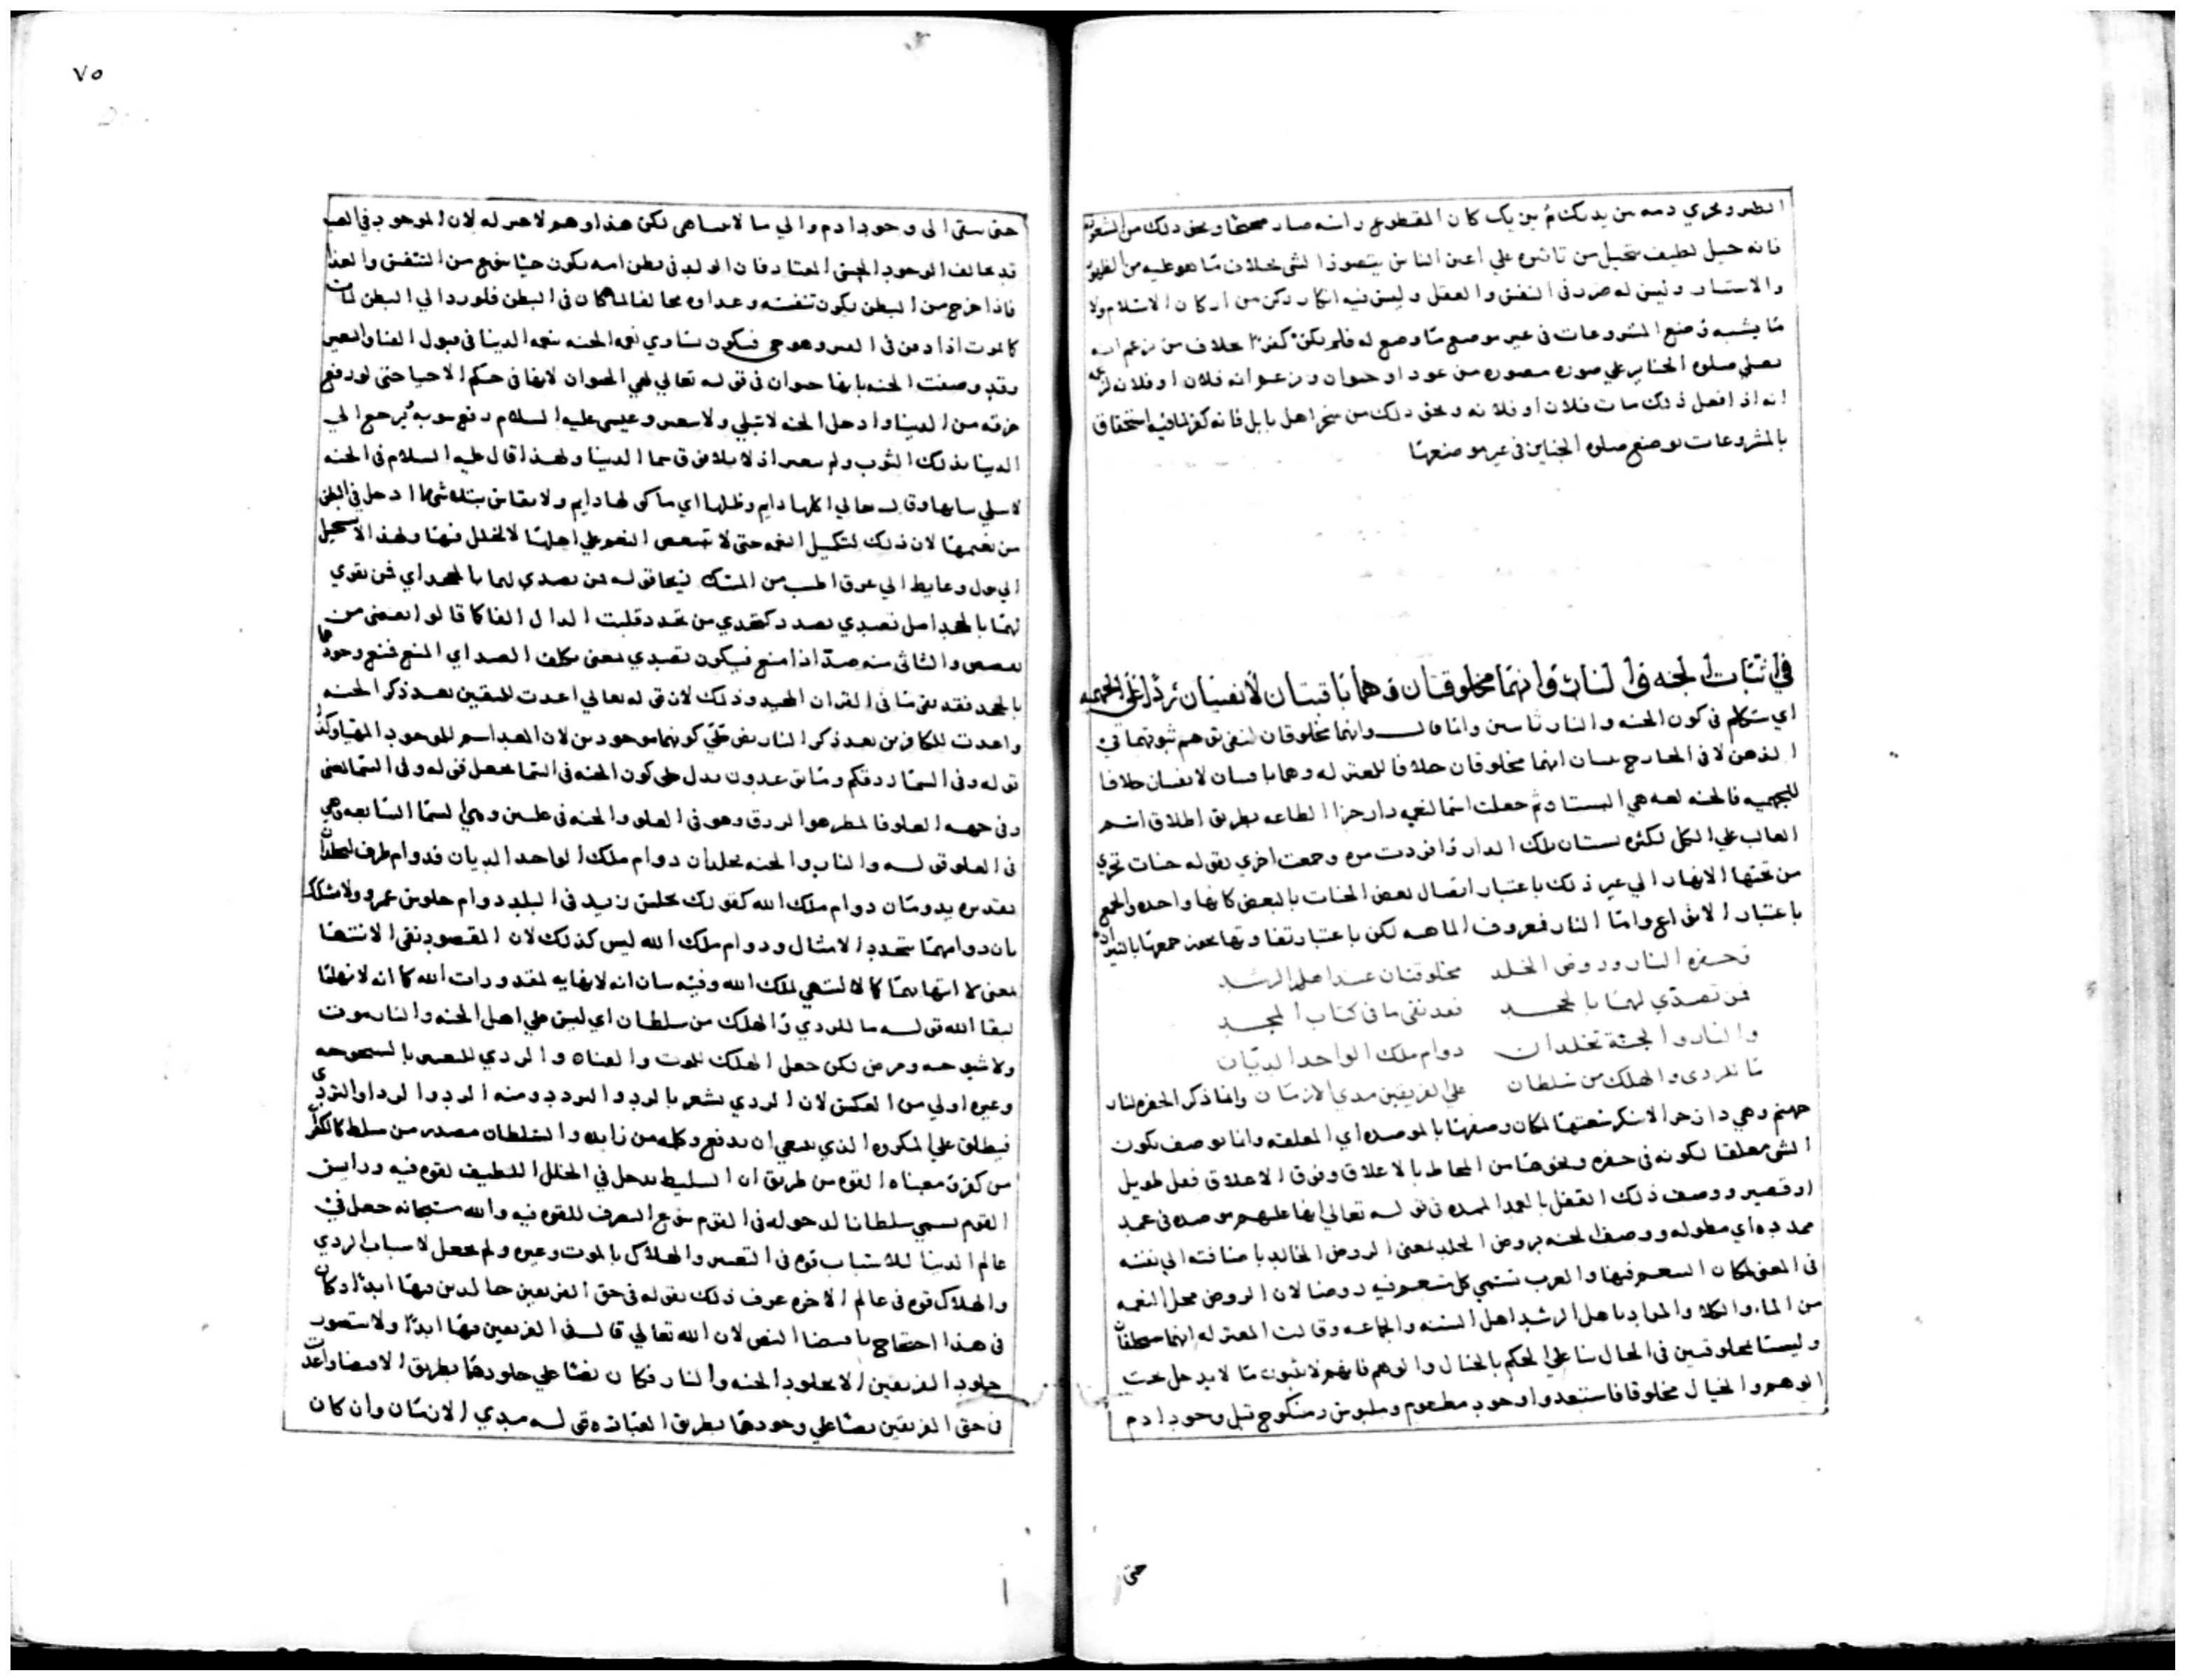 فانه حيل لطيف يتخيل من تاثيره علي اعين الناس يتصور الشي بخلاف ما هو عليه من
والاستار وليس له ضرر في النفس والعقل وليس فيه انكار ركن من اركان الاسلام ولا
ما يشبه وضع المشروعات في غير موضع ما وضع له فلم يكن كفرا بخلاف من زعم انه
يصلي صلوه الجنايز علي صوره مصوره من عود او حيوان وزعم انه فلان او فلانه
انه اذا فعل ذلك مات فلان او فلانه ونحو ذلك من سحر اهل بابل فانه كفر لما فيه استخفاف
بالمشروعات بوضع صلوه الجنايز في غير موضعها
في اثبات الجنه والنار وانهما مخلوقتان وهما باقيتان لا تفنيان ردا علي الجهميه
اي سنتكلم في كون الجنه والنار ثابتين وانما قال وانهما مخلوقتان لنفي توهم ثبوتهما في
الذهن لا في الخارج بيان انهما مخلوقتان خلافا للمعتزله وهما باقيتان لا تفنيان خلافا
للجهميه فالجنه لغه هي البستان ثم جعلت اسما لغي دار جزا الطاعه بطريق اطلاق اسم
الغالب علي الكل لكثره بستان تلك الدار وافردت مره وجمعت اخري بقوله جنات تجري
من تحتها الانهار الي غير ذلك باعتبار اتصال بعض الجنات بالبعض كانها واحده والجمع
باعتبار الانواع واما النار فمعروف الماهيه لكن باعتبار تفاوتها يجوز جمعها بالنيران
وحفره النار وروض الخلد مخلوقتان عند اهل الرشد
فمن تصدي لهما بالجحد فقد نفي ما في كتاب المجد
والنار والجنة تخلدان دوام ملك الواحد الديان
ما للردي والهلك من سلطان علي الفريقين مدي الازمان وانما ذكر الحفره لنار
الشي مغلقا لكونه في حفره ونحوها من المحاط بالاغلاق وفوق الاغلاق قفل طويل
او قصير ووصف ذلك القفل بالعمد الممدده في قوله تعالي انها عليهم موصده في عمد
ممدده اي مطوله ووصف الجنه بروض الخلد بمعني الروض الخالد باضافته الي نفسه
في المعني لمكان التنعم فيها والعرب تسمي كل متنعم فيه روضا لان الروض محل النعمه
من الماء والكلا والمراد باهل الرشد اهل السنه والجماعه وقالت المعتزله انهما ستخلقان
وليستا مخلوقتين في الحال بنا علي الحكم بالخيال والوهم فانهم لا يثبتون ما لا يدخل تحت
الوهم والخيال مخلوقا فاستبعدوا وجود مطعوم وملبوس ومنكوح قبل وجود ادم
حتي
٧٥
قد يخالف الوجود الحسي المعتاد فان الولد في بطن امه يكون حيا بنوع من التنفس والغذا
فاذا خرج من البطن يكون تنفسه وغداوه مخالفا لما كان في البطن فلو رد الي البطن لمات
كالموت اذا دفن في القبر وهو حي فيكون تساوي نعم الجنه بنعمه الدنيا في قبول الفنا والتغير
وقد وصفت الجنه بانها حيوان في قوله تعالي لهي الحيوان لانها في حكم الاحيا حتي لو رفع
خرقه من الدنيا وادخل الجنه لا تبلي ولا تتغير وعيسي عليه السلام رفع بثوبه ثم يرجع الي
الدنيا بذلك الثوب ولم يتغير اذ لا بلا فوق سما الدنيا ولهذا قال عليه السلام في الجنه
لا يبلي ثيابها وقال تعالي اكلها دايم وظلها اي ماكولها دايم ولا يقاس بتلاشي ما ادخل في البطن
من نعيمها لان ذلك لتكميل النعمه حتي لا تنغص النعم علي اهلها لا لخلل فيها ولهذا لا يستحيل
الي بول وغايط الي عرق اطيب من المسك ريحا قوله فمن تصدي لهما بالجحد اي فمن تقوي
لهما بالجحد اصل تصدي تصدد كتقدي من تقدد قلبت الدال الفا كما قالوا تقضي من
تقضض والثاني منه صد اذا منع فيكون تصدي بمعني تكلف الصد اي المنع فمنع وجودهما
بالجحد فقد نفي ما في القران المجيد وذلك لان قوله تعالي اعدت للمتقين بعد ذكر الجنه
واعدت للكافرين بعد ذكر النار نص علي كونهما موجودين لان المعد اسم للموجود المهيا وكذا
قوله وفي السما رزقكم وما توعدون يدل علي كون الجنه في السما
وفي جهه العلو فالمطر هو الرزق وهو في العلو والجنه في عليين وهي السما السابعه وهي
في العلو قوله والنار والجنه تخلدان دوام ملك الواحد الديان فدوام ظرف لتخلدان
تقديره يدومان دوام ملك الله كقولك يجلس زيد في البلد دوام جلوس عمرو ولا شك
بان دوامهما بتجدد الامثال ودوام ملك الله ليس كذلك لان المقصود نفي الانتها
بمعني لا انتها لهما كما لا انتهي لملك الله وفيه بيان انه لا نهايه لمقدورات الله كما انه لا نهايه
لبقا الله قوله ما للردي والهلك من سلطان اي ليس علي اهل الجنه والنار موت
ولا شيوخه ومرض لكن جعل الهلك للموت والفناء والردي للتغير بالشيخوخه
وغيره اولي من العكس لان الردي يشعر بالرد والتردد ومنه الرد والردا والتردي
فيطلق علي المكروه الذي ينبغي ان يدفع وكله من زايده والسلطان مصدر من سلط كالكفران
من كفر ومعناه القوه من طريق ان السليط يدخل في الخلل اللطيف لقوه فيه ورايس
القوم يسمي سلطانا لدخوله في القوم بنوع التصرف للقوه فيه والله سبحانه جعل في
عالم الدنيا للاسباب قوه في التغير والهلاك بالموت وغيره ولم يجعل لاسباب الردي
والهلاك قوه في عالم الاخره عرف ذلك بقوله في حق الفريقين خالدين فيها ابدا وكان
في هذا احتجاج باقتضا النص لان الله تعالي قال في الفريقين فيها ابدا ولا يتصور
خلود الفريقين الا بخلود الجنه والنار فكان نصا علي خلودهما بطريق الاقتضا واعدت
في حق الفريقين نصا علي وجودهما بطريق العباره قوله مدي الازمان وان كان